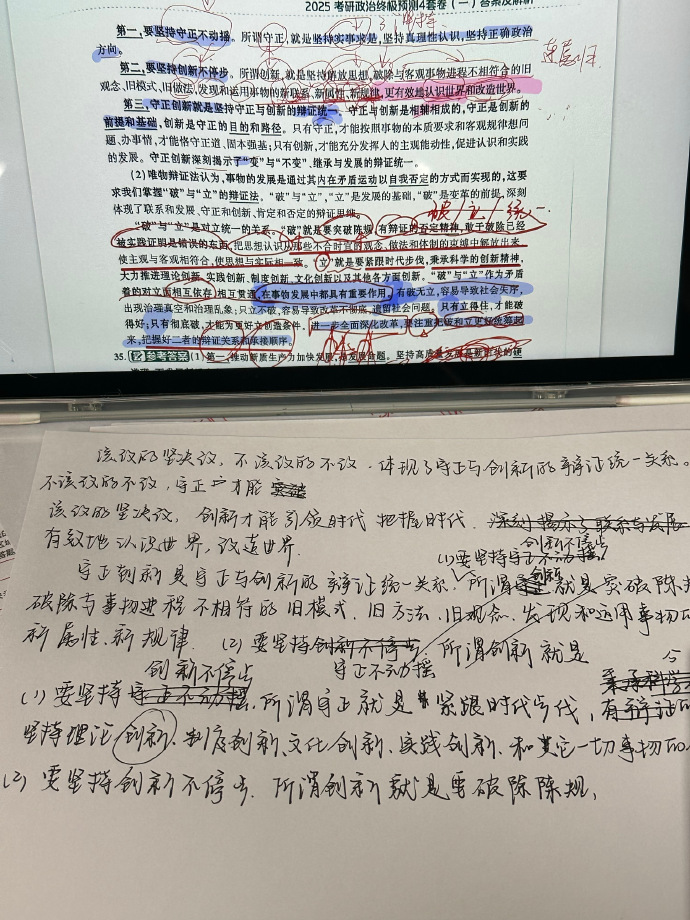 2025 考研政治终极预测4套卷（一）答案及解析
第一，要坚持守正不动摇。所谓守正，就是坚持实事求是，坚持真理性认识，坚持正确政治
方向。
第二，要坚持创新不停步。所谓创新，就是坚持解放思想，破除与客观事物进程不相符合的旧
观念、旧模式、旧做法，发现和运用事物的新联系、新属性、新规律，更有效地认识世界和改造世界。
第三，守正创新就是坚持守正与创新的辩证统一。守正与创新是相辅相成的，守正是创新的
前提和基础，创新是守正的目的和路径。只有守正，才能按照事物的本质要求和客观规律想问
题、办事情，才能恪守正道、固本强基；只有创新，才能充分发挥人的主观能动性，促进认识和实践
的发展。守正创新深刻揭示了“变”与“不变”、继承与发展的辩证统一。
（2）唯物辩证法认为，事物的发展是通过其内在矛盾运动以自我否定的方式而实现的，这要
求我们掌握“破”与“立”的辩证法。“破”与“立”，“立”是发展的基础，“破”是变革的前提，深刻
体现了联系和发展、守正和创新、肯定和否定的辩证思维。
破/立/统一
“破”与“立”是对立统一的关系。“破”就是要突破陈规，有辩证的否定精神，敢于破除已经
被实践证明是错误的东西，把思想认识从那些不合时宜的观念、做法和体制的束缚中解放出来，
使主观与客观相符合，使思想与实际相一致。“立”就是要紧跟时代步伐，秉承科学的创新精神，
大力推进理论创新、实践创新、制度创新、文化创新以及其他各方面创新。“破”与“立”作为矛盾
着的对立面相互依存、相互贯通，在事物发展中都具有重要作用。有破无立，容易导致社会失序，
出现治理真空和治理乱象；只立不破，容易导致改革不彻底，遗留社会问题。只有立得住，才能破
得好；只有彻底破，才能为更好立创造条件。进一步全面深化改革，要注重把破和立更好统筹起
来，把握好二者的辩证关系和承接顺序。
35.【参考答案】（1）第一，推动新质生产力加快发展，是发展命题。坚持高质量发展是新时代的硬
该改的坚决改，不该改的不改，体现了守正与创新的辩证统一关系。
不该改的不改，守正 才能 突破
该改的坚决改，创新才能引领时代 把握时代. 深刻揭示了联系与发展
有效地认识世界，改造世界. 创新不停步
（1）要坚持守正不动摇。
守正创新是守正与创新的辩证统一关系. 所谓 创新 就是突破陈规
破除与事物进程不相符的旧模式、旧方法、旧观念、发现和运用事物的
新属性、新规律. （2）要坚持创新不停步. 所谓创新就是
创新不停步 守正不动摇
（1）要坚持守正不动摇. 所谓守正就是 紧跟时代步伐，秉承科学 有辩证的
坚持理论创新、制度创新、文化创新、实践创新、和其它一切事物的
（2）要坚持创新不停步. 所谓创新就是要破除陈规，